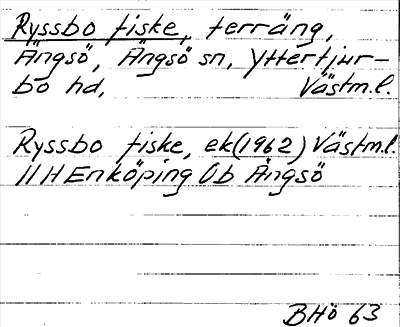 Ryssbo fiske, terräng,
Ängsö, Ängsö sn, Yttertjur-
bo hd, Västm.l.
Ryssbo fiske, ek(1962) Västml.
11H Enköping 0b Ängsö
BHö 63